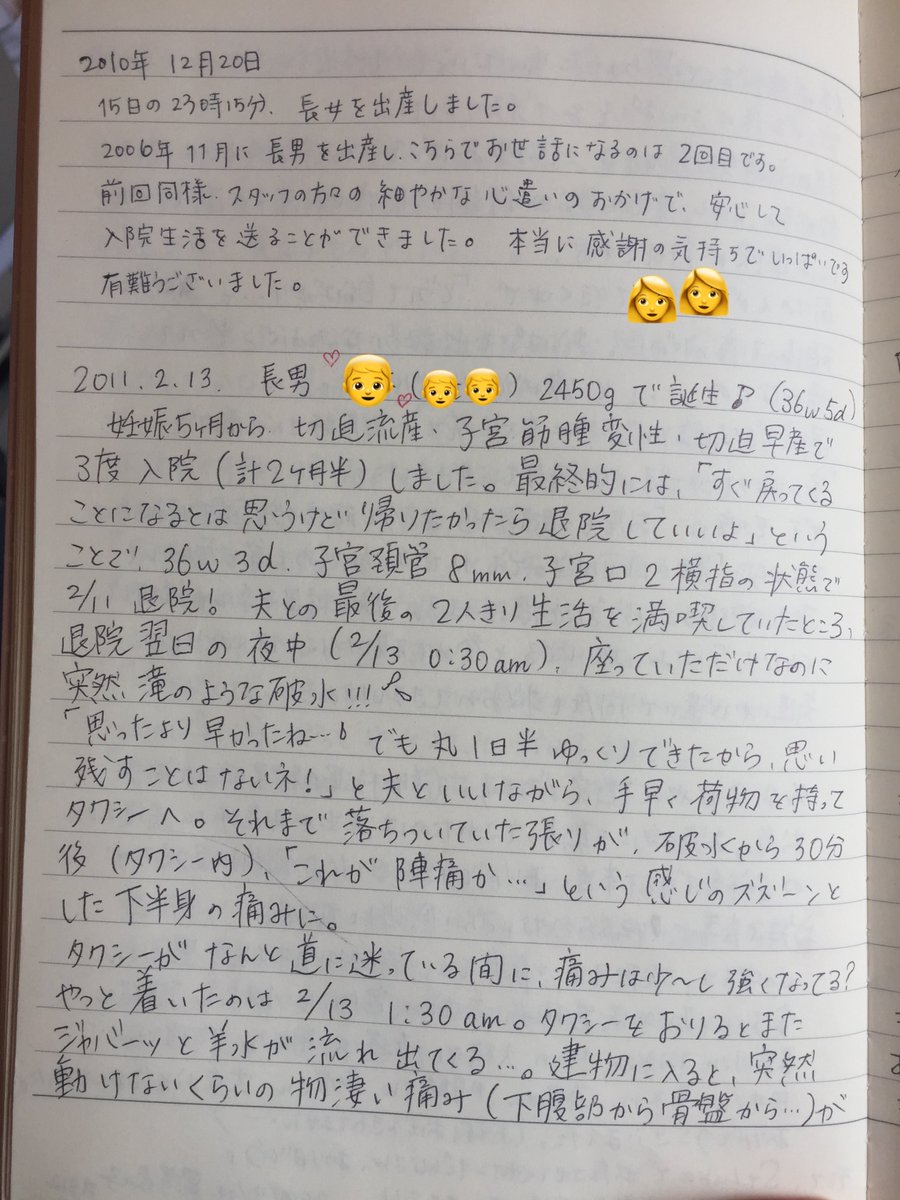 2010年 12月20日
15日の23時15分、長女を出産しました。
2006年 11月に 長男を出産し、こちらでお世話になるのは 2回目です。
前回同様、スタッフの方々の 細やかな 心遣いの おかげで、安心して
入院生活を 送ることが できました。 本当に 感謝の気持ちで いっぱいです
有難うございました。
2011.2.13. 長男 ( ) 2450g で 誕生♪ (36w5d)
妊娠5ヶ月から、切迫流産・子宮筋腫変性・切迫早産で
3度 入院 (計2ヶ月半) しました。最終的には、「すぐ戻ってくる
ことになるとは 思うけど 帰りたかったら 退院 していいよ」という
ことで、36w 3d、子宮頚管 8mm、子宮口 2横指の 状態で
2/11 退院! 夫との 最後の 2人きり 生活を 満喫していたところ、
退院 翌日の 夜中 (2/13 0:30am)、座っていただけなのに
突然 滝のような破水!!!
「思ったより 早かったね…♪ でも 丸1日半 ゆっくりできたから、思い
残すことはないネ!」と夫といいながら、手早く 荷物を持って
タクシーへ。それまで 落ちついていた張りが、破水から 30分
後 (タクシー内)、「これが 陣痛か…」という 感じの ズズーンと
した下半身の 痛みに。
タクシーが なんと 道に迷っている間に、痛みは少〜し 強くなってる?
やっと 着いたのは 2/13 1:30 am。タクシーを おりると また
ジャバーッと 羊水が 流れ 出てくる…。建物に入ると、突然
動けないくらいの 物凄い 痛み (下腹部から 骨盤から…)が